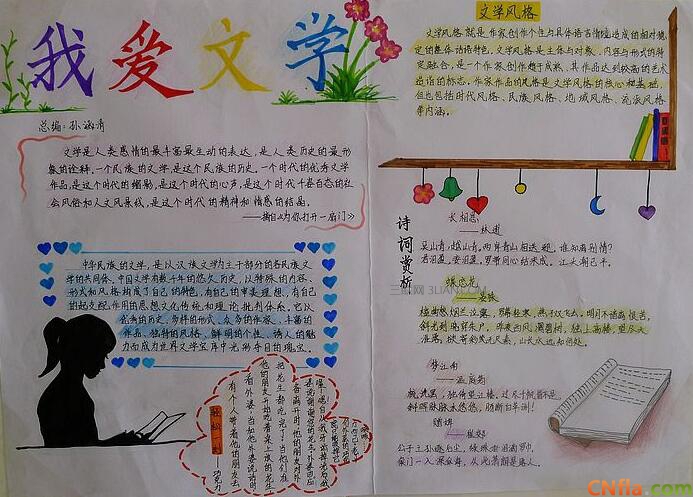 我爱文学
总编:孙涵清
文学是人类感情的最丰富最生动的表达,是人类历史的最形
象的诠释.一个民族的文学,是这个民族的历史.一个时代的优秀文学
作品,是这个时代的缩影,是这个时代的心声,是这个时代千姿百态的社
会风俗和人文风景线,是这个时代的精神和情感的结晶.
中华民族的文学,是以汉族文学为主干部分的各民族文
学的共同体.中国文学有数千年的悠久历史,以特殊的内容、
形式和风格构成了自己的特色,有自己的审美理想,有自己
的起支配作用的思想文化传统和理论批判体系.它以
优秀的历史、多样的形式、众多的作家、丰富的
作品、独特的风格、鲜明的个性、诱人的魅
力而成为世界文学宝库中光彩夺目的瑰宝.
文学风格
文学风格,就是作家创作个性与具体话语情境造成的相对稳
定的整体话语特色.文学风格是主体与对象、内容与形式的特
定融合,是一个作家创作趋于成熟、其作品达到较高的艺术
造诣的标志.作家作品的风格是文学风格的核心和基础,
但也包括时代风格、民族风格、地域风格、流派风格
等内涵.
诗词赏析
长相思
——林逋
吴山青,越山青.两岸青山相送迎,谁知离别情?
君泪盈,妾泪盈,罗带同心结未成,江头潮已平.
蝶恋花
——晏殊
槛菊愁烟兰泣露,罗幕轻寒,燕子双飞去.明月不谙离恨苦,
斜光到晓穿朱户.昨夜西风凋碧树,独上高楼,望尽天
涯路.欲寄彩笺兼尺素,山长水远知何处.
梦江南
——温庭筠
梳洗罢,独倚望江楼.过尽千帆皆不是,
斜晖脉脉水悠悠,肠断白苹洲!
赠婢
——崔郊
公子王孙逐后尘,绿珠垂泪滴罗巾.
侯门一入深似海,从此萧郎是路人.
轻松一刻
三联网 3LIAN.COM
CNfla.com